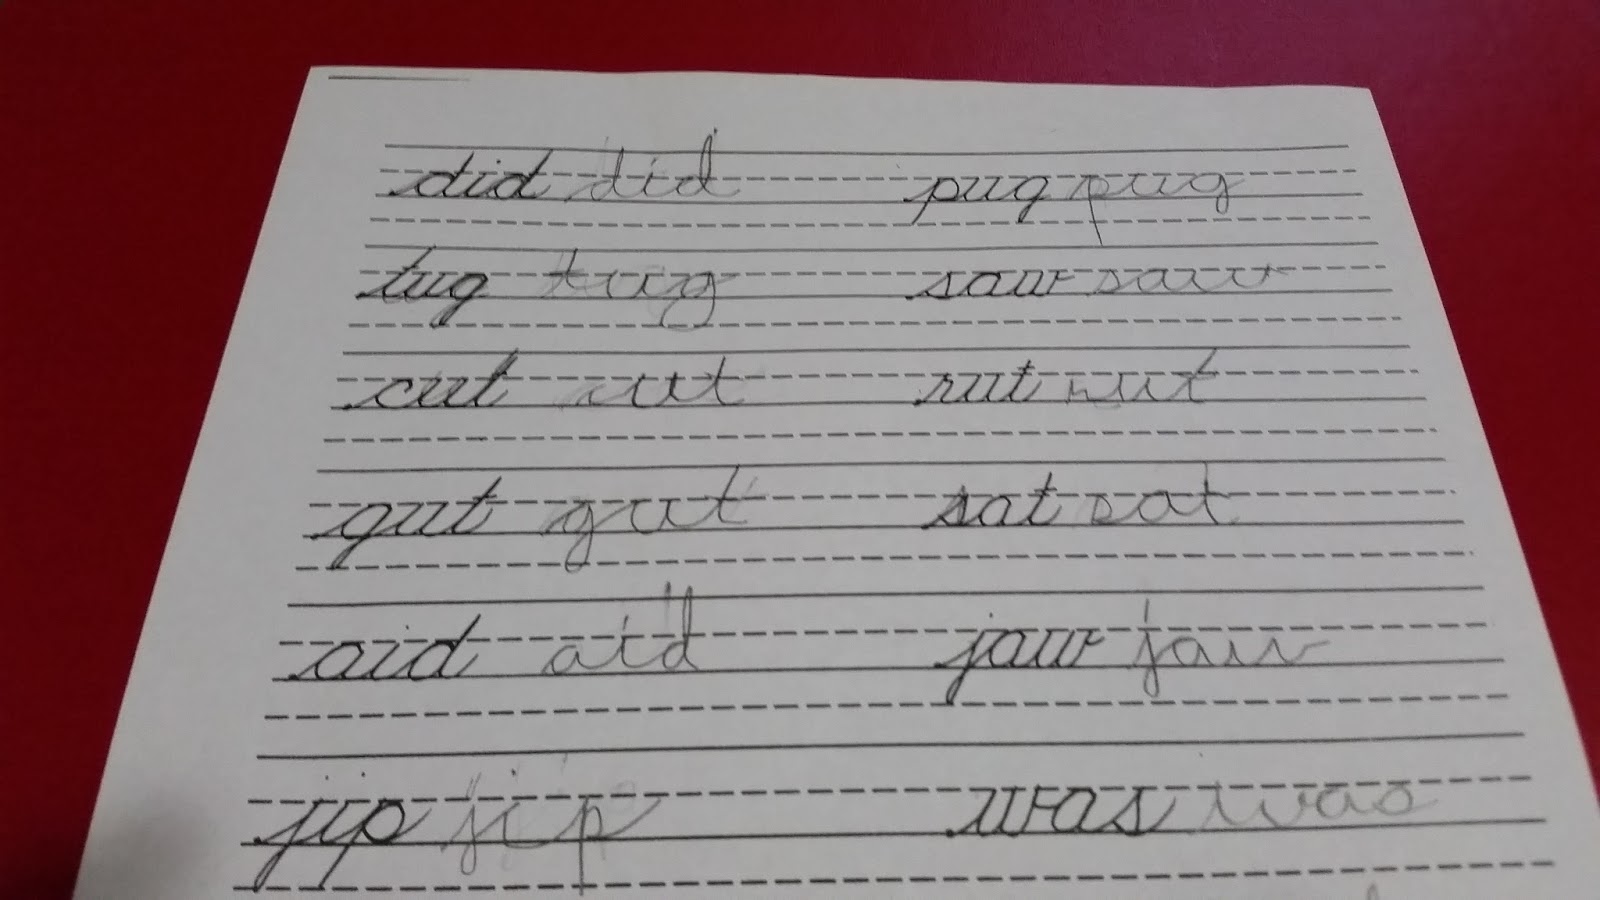 did did pug pug
tug tug saw saw
cut cut rut rut
gut gut sat sat
aid aid jaw jaw
jip jip was was